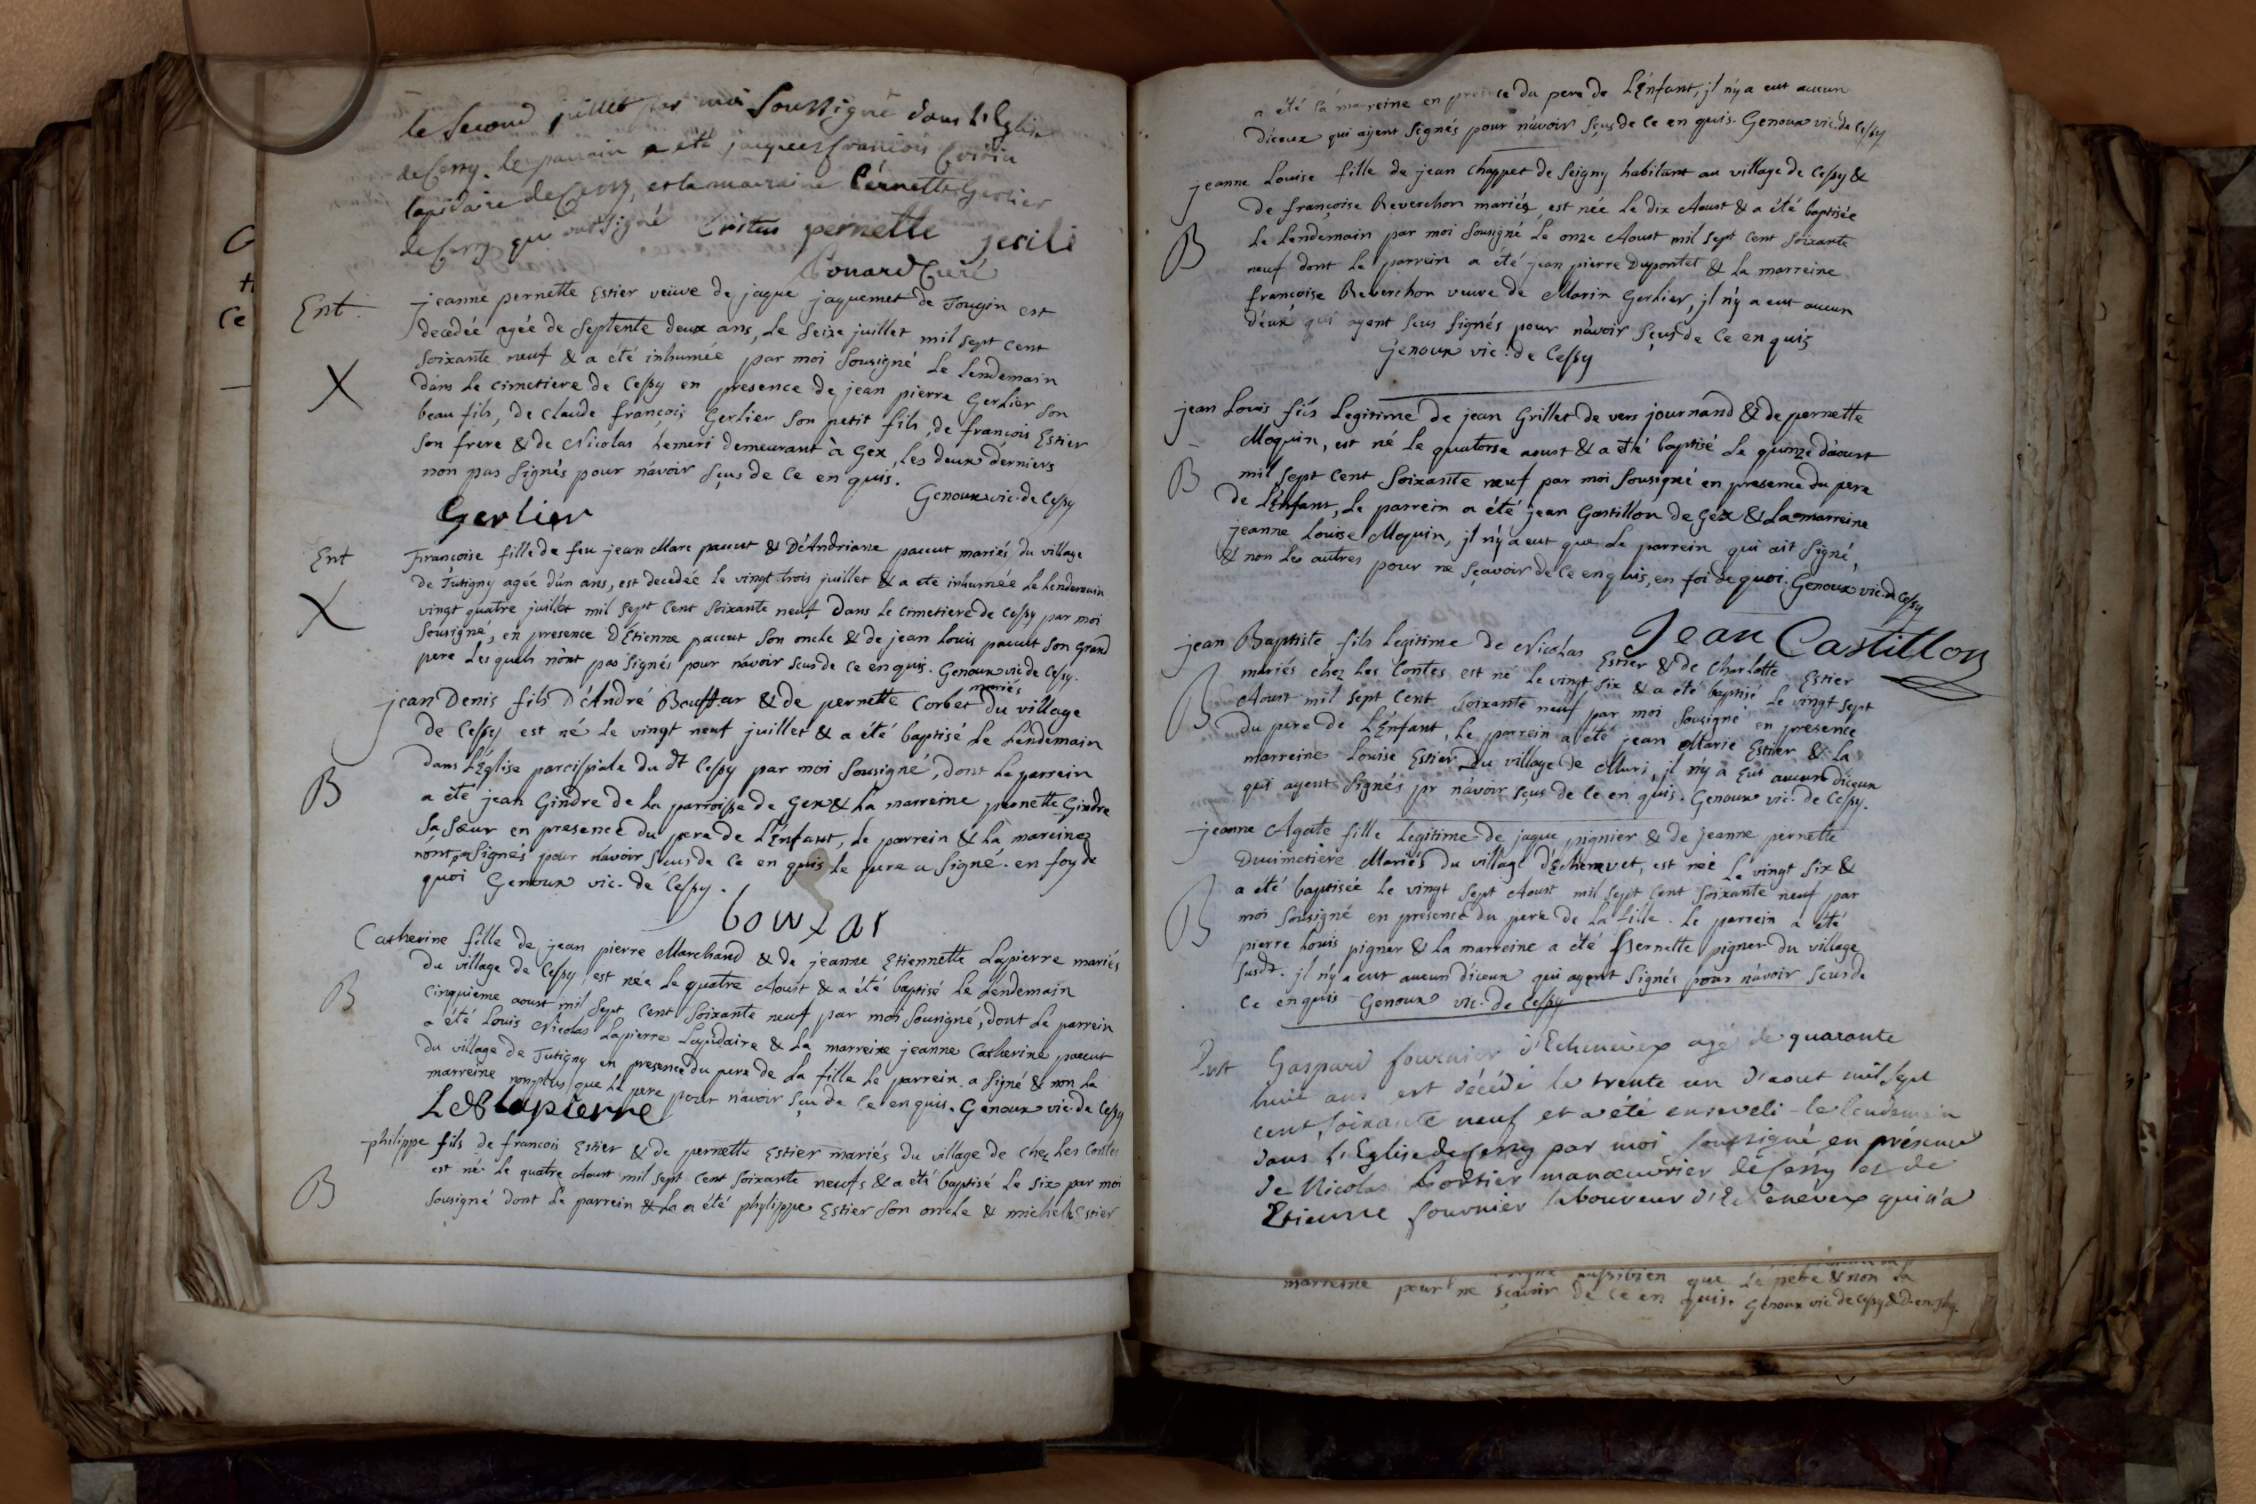 le second juillet par moi soussigné dans l'Eglise
de Cessy. le parrain a été jacques françois
lapidaire de Cessy, et la marraine Pernette Gerlier
de Cessy qui ont signé pernette
Curé
Ent. jeanne pernette Estier veüve de jaque jaquemet de Tougin est
decedée agée de septente deux ans, le seize juillet mil sept cent
soixante neuf & a été inhumée par moi sousigné le lendemain
X dans le cimetiere de Cessy en presence de jean pierre Gerlier son
beau fils, de claude françois Gerlier son petit fils, de françois Estier
son frere & de Nicolas hemeri demeurant à Gex, les deux derniers
non pas signés pour n'avoir sçus de ce en quis.
Genoux vic. de Cessy
Gerlier
Ent Francoise fille de feu jean Marc pacout & D'Andriane pacout mariés du village
de Tutigny agée d'un ans, est decedée le vingt trois juillet & a été inhumée le lendemain
X vingt quatre juillet mil sept cent soixante neuf dans le cimetiere de Cessy par moi
sousigné, en presence d'Etienne pacout son oncle & de jean Louis pacout son grand
pere lesquels n'ont pas signés pour n'avoir sçus de ce en quis. Genoux vic de Cessy.
mariés
jean Denis fils D'André Bouffar & de pernette Corbet du village
de Cessy est né le vingt neuf juillet & a été baptisé le lendemain
dans l'Église parcissiale du dt Cessy par moi sousigné, dont le parrein
B a été jean Gindre de la parroisse de Gex & la marreine pernette Gindre
sa sœur en presence du pere de l'Enfant, le parrein & la marreine
n'ont pas signés pour n'avoir sçus de ce en quis le pere a signé. en foy de
quoi Genoux vic. de Cessy.
bouxar
Catherine fille de jean pierre Marchand & de jeanne Etiennette Lapierre mariés
du village de Cessy, est née le quatre Aoust & a été baptisé le lendemain
B cinquieme aoust mil sept cent soixante neuf par moi sousigné, dont le parrein
a été Louis Nicolas Lapierre Lapidaire & la marreine jeanne Catherine pacout
du village de Tutigny en presence du pere de la fille le parrein a signé & non la
marreine non plus que le pere pour n'avoir sçu de ce en quis. Genoux vic. de Cessy
lapierre
philippe fils de francois Estier & de pernette Estier mariés du village de chez les Contes
est né le quatre Aoust mil sept cent soixante neufs & a été baptisé le six par moi
B sousigné dont le parrein & la a été phylippe Estier son oncle & michelle Estier
a été la marreine en presence du pere de l'Enfant, jl n'y a eut aucun
d'iceux qui ayent signés pour n'avoir sçus de ce en quis. Genoux vic. de Cessy
jeanne Louise fille de jean Chappet de Seigny habitant au village de Cessy &
de françoise Reverchon mariés, est née le dix Aoust & a été baptisée
B le lendemain par moi sousigné le onze Aoust mil sept cent soixante
neuf dont le parrein a été jean pierre Dupontet & la marreine
françoise Reverchon veuve de Marin Gerlier, jl n'y a eut aucun
d'eux qui ayent sçus signés pour n'avoir sçus de ce en quis
Genoux vic. de Cessy
jean Louis fils legitime de jean Grillet de vers journand & de pernette
Moquin, est né le quatorse aoust & a été baptisé le quinze d'aoust
B mil sept cent soixante neuf par moi sousigné en presence du pere
de l'Enfant, le parrein a été jean Gastillon de Gex & la marreine
jeanne Louise Moquin, jl n'y a eut que le parrein qui ait signé,
& non les autres pour ne sçavoir de ce en quis, en foi de quoi. Genoux vic. de Cessy
Jean Castillon
jean Baptiste fils legitime de Nicolas Estier & de Charlotte Estier
mariés chez les Contes est né le vingt six & a été baptisé le vingt sept
B Aoust mil sept cent soixante neuf par moi sousigné en presence
du pere de l'Enfant, le parrein a été jean Marie Estier & la
marreine Louise Estier du village de Muri, jl n'y a eut aucun d'iceux
qui ayent signés pr n'avoir sçus de ce en quis. Genoux vic. de Cessy.
jeanne Agate fille legitime de jaque pignier & de jeanne pernette
Ducimetiere Mariés du village d'Echenevet, est née le vingt six &
a été baptisée le vingt sept Aoust mil sept cent soixante neuf par
B moi sousigné en presence du pere de la fille. le parrein a été
pierre Louis pigner & la marreine a été Pernette pigner du village
susdt. jl n'y a eut aucun d'iceux qui ayent signés pour n'avoir sçus de
ce en quis Genoux vic. de Cessy
Gaspard fournier d'Echenevex agé de quarante
huit ans est décédé le trente un d'aout mil sept
cent soixante neuf et a été enseveli le lendemain
dans l'Eglise de Cessy par moi soussigné en présence
de Nicolas manœuvrier de Cessy et de
Etienne fournier laboureur d'Echenevex qui n'a
que le pere & non la
marreine pour ne sçavoir de ce en quis. Genoux vic de Cessy